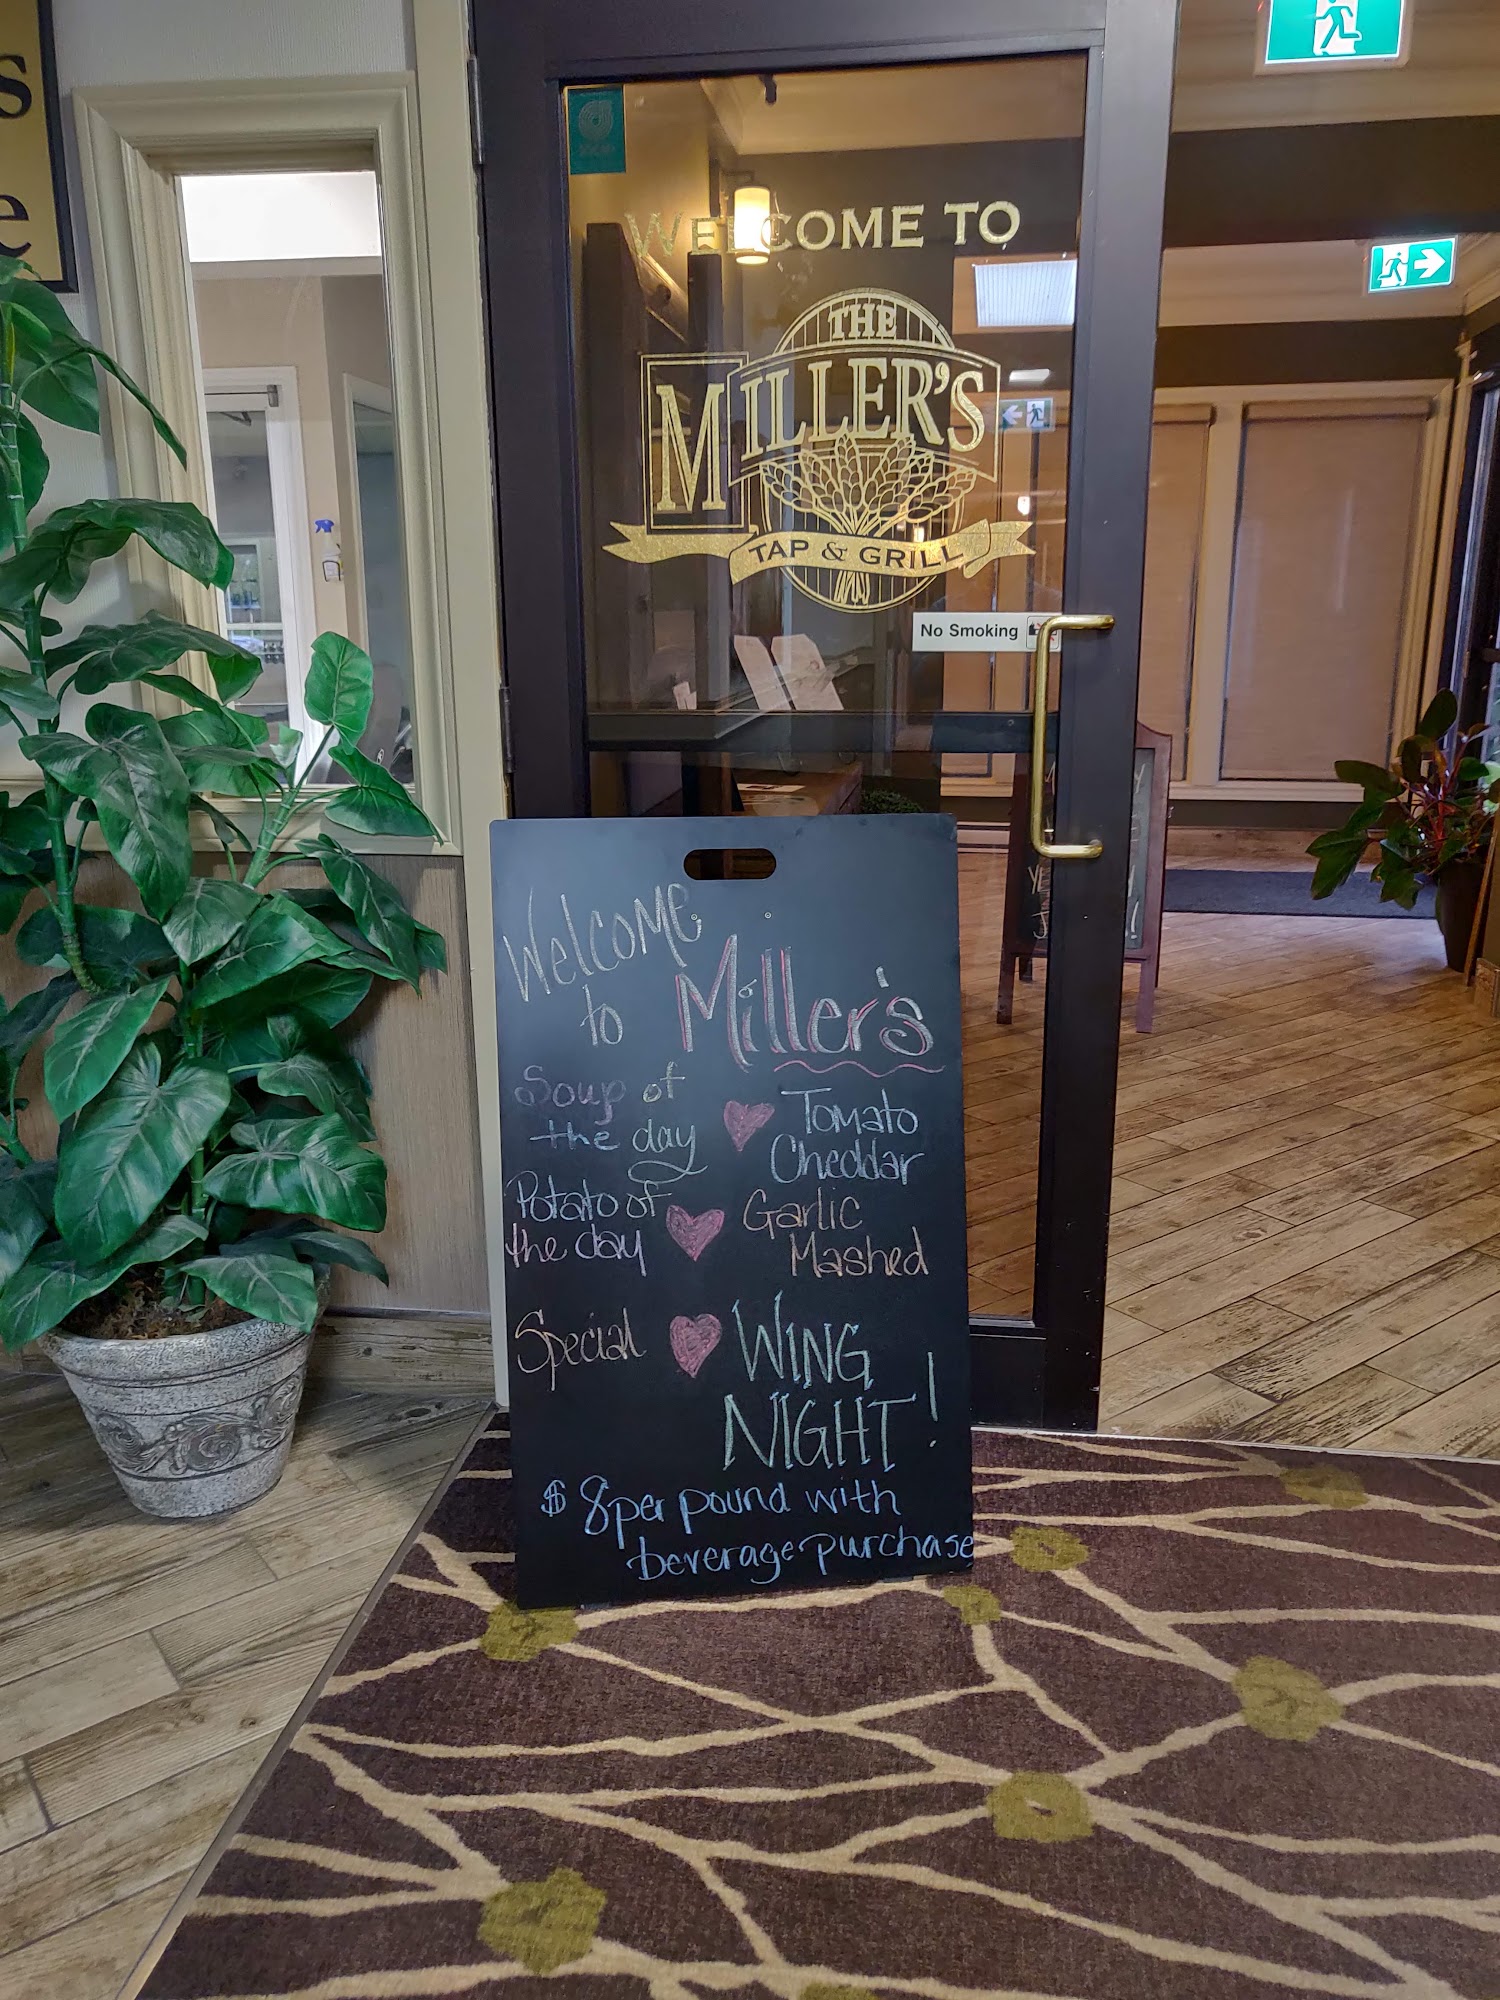 s
e
WELCOME TO
THE
MILLER'S
TAP & GRILL
No Smoking
Welcome
to Miller's
Soup of
the day
Tomato
Cheddar
Potato of
the day
Garlic
Mashed
Special
WING
NIGHT!
$8 per pound with
beverage purchase